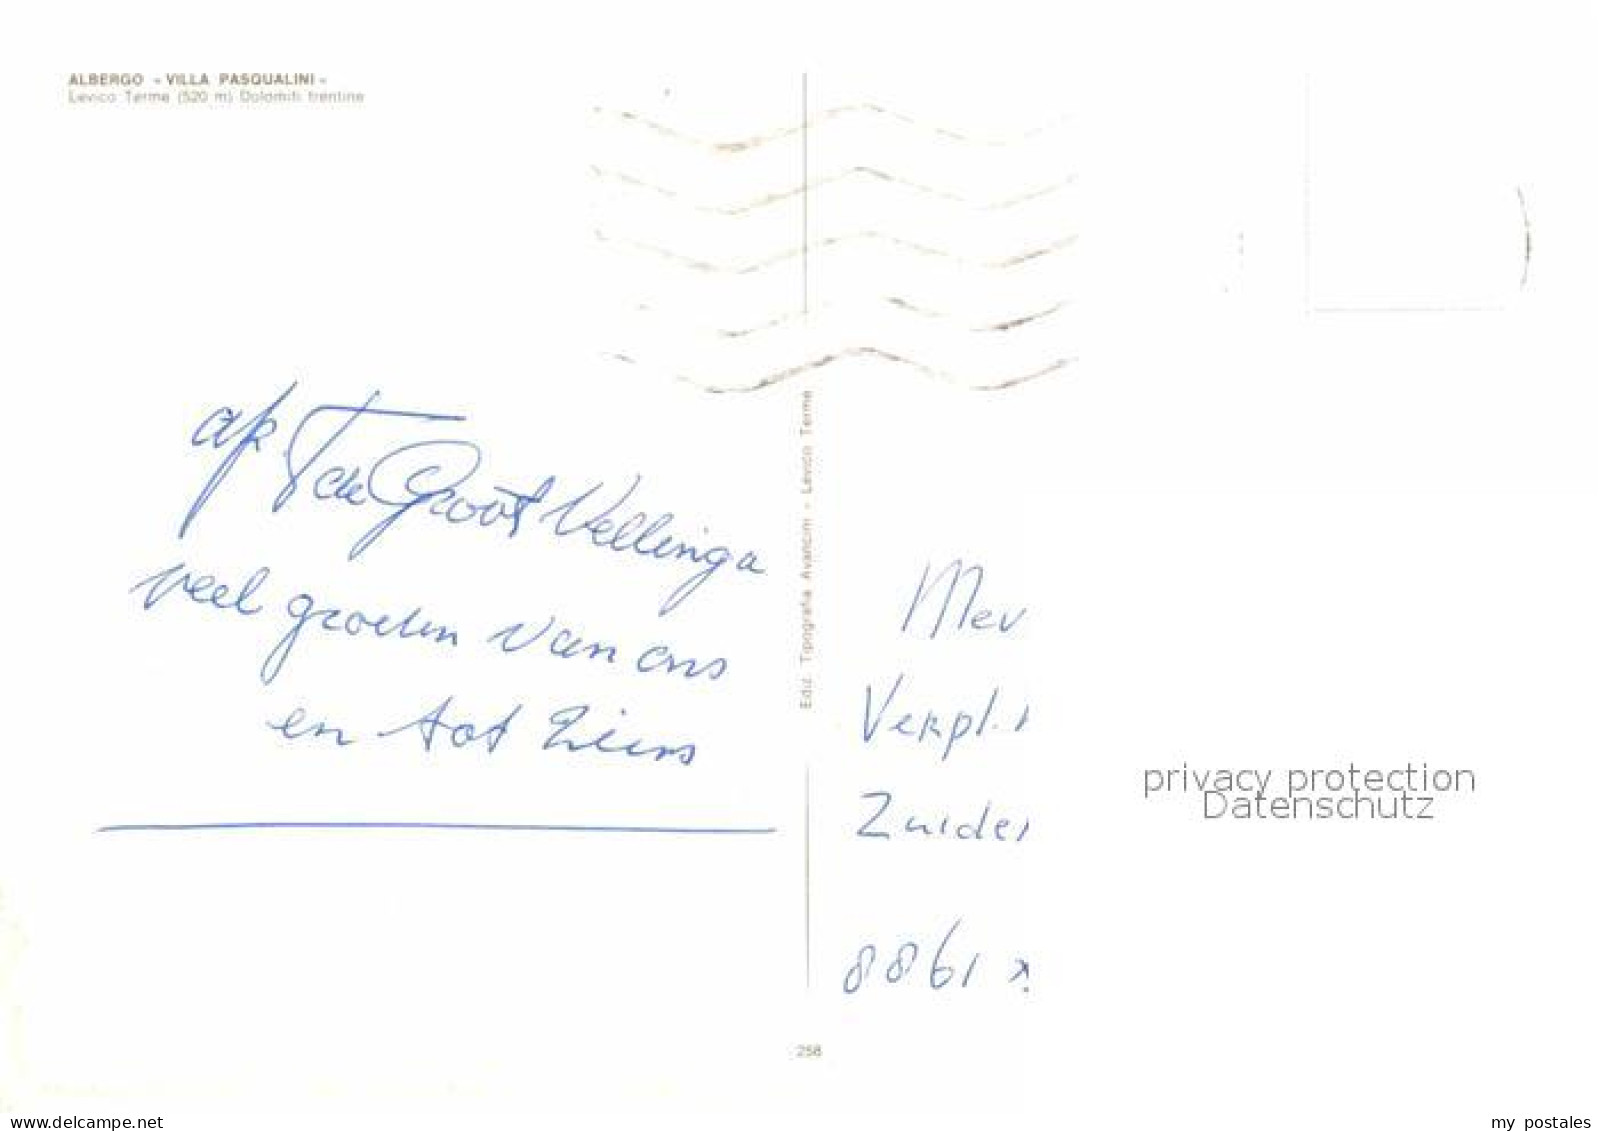 ALBERGO « VILLA PASQUALINI »
Levico Terme (520 m) Dolomiti trentine
T de Groot Vellinga
veel groeten van ons
en tot ziens
Ediz. Tipografia Avancini - Levico Terme
Mev
Verpl.
Zuider
8861
258
privacy protection
Datenschutz
www.delcampe.net
my_postales